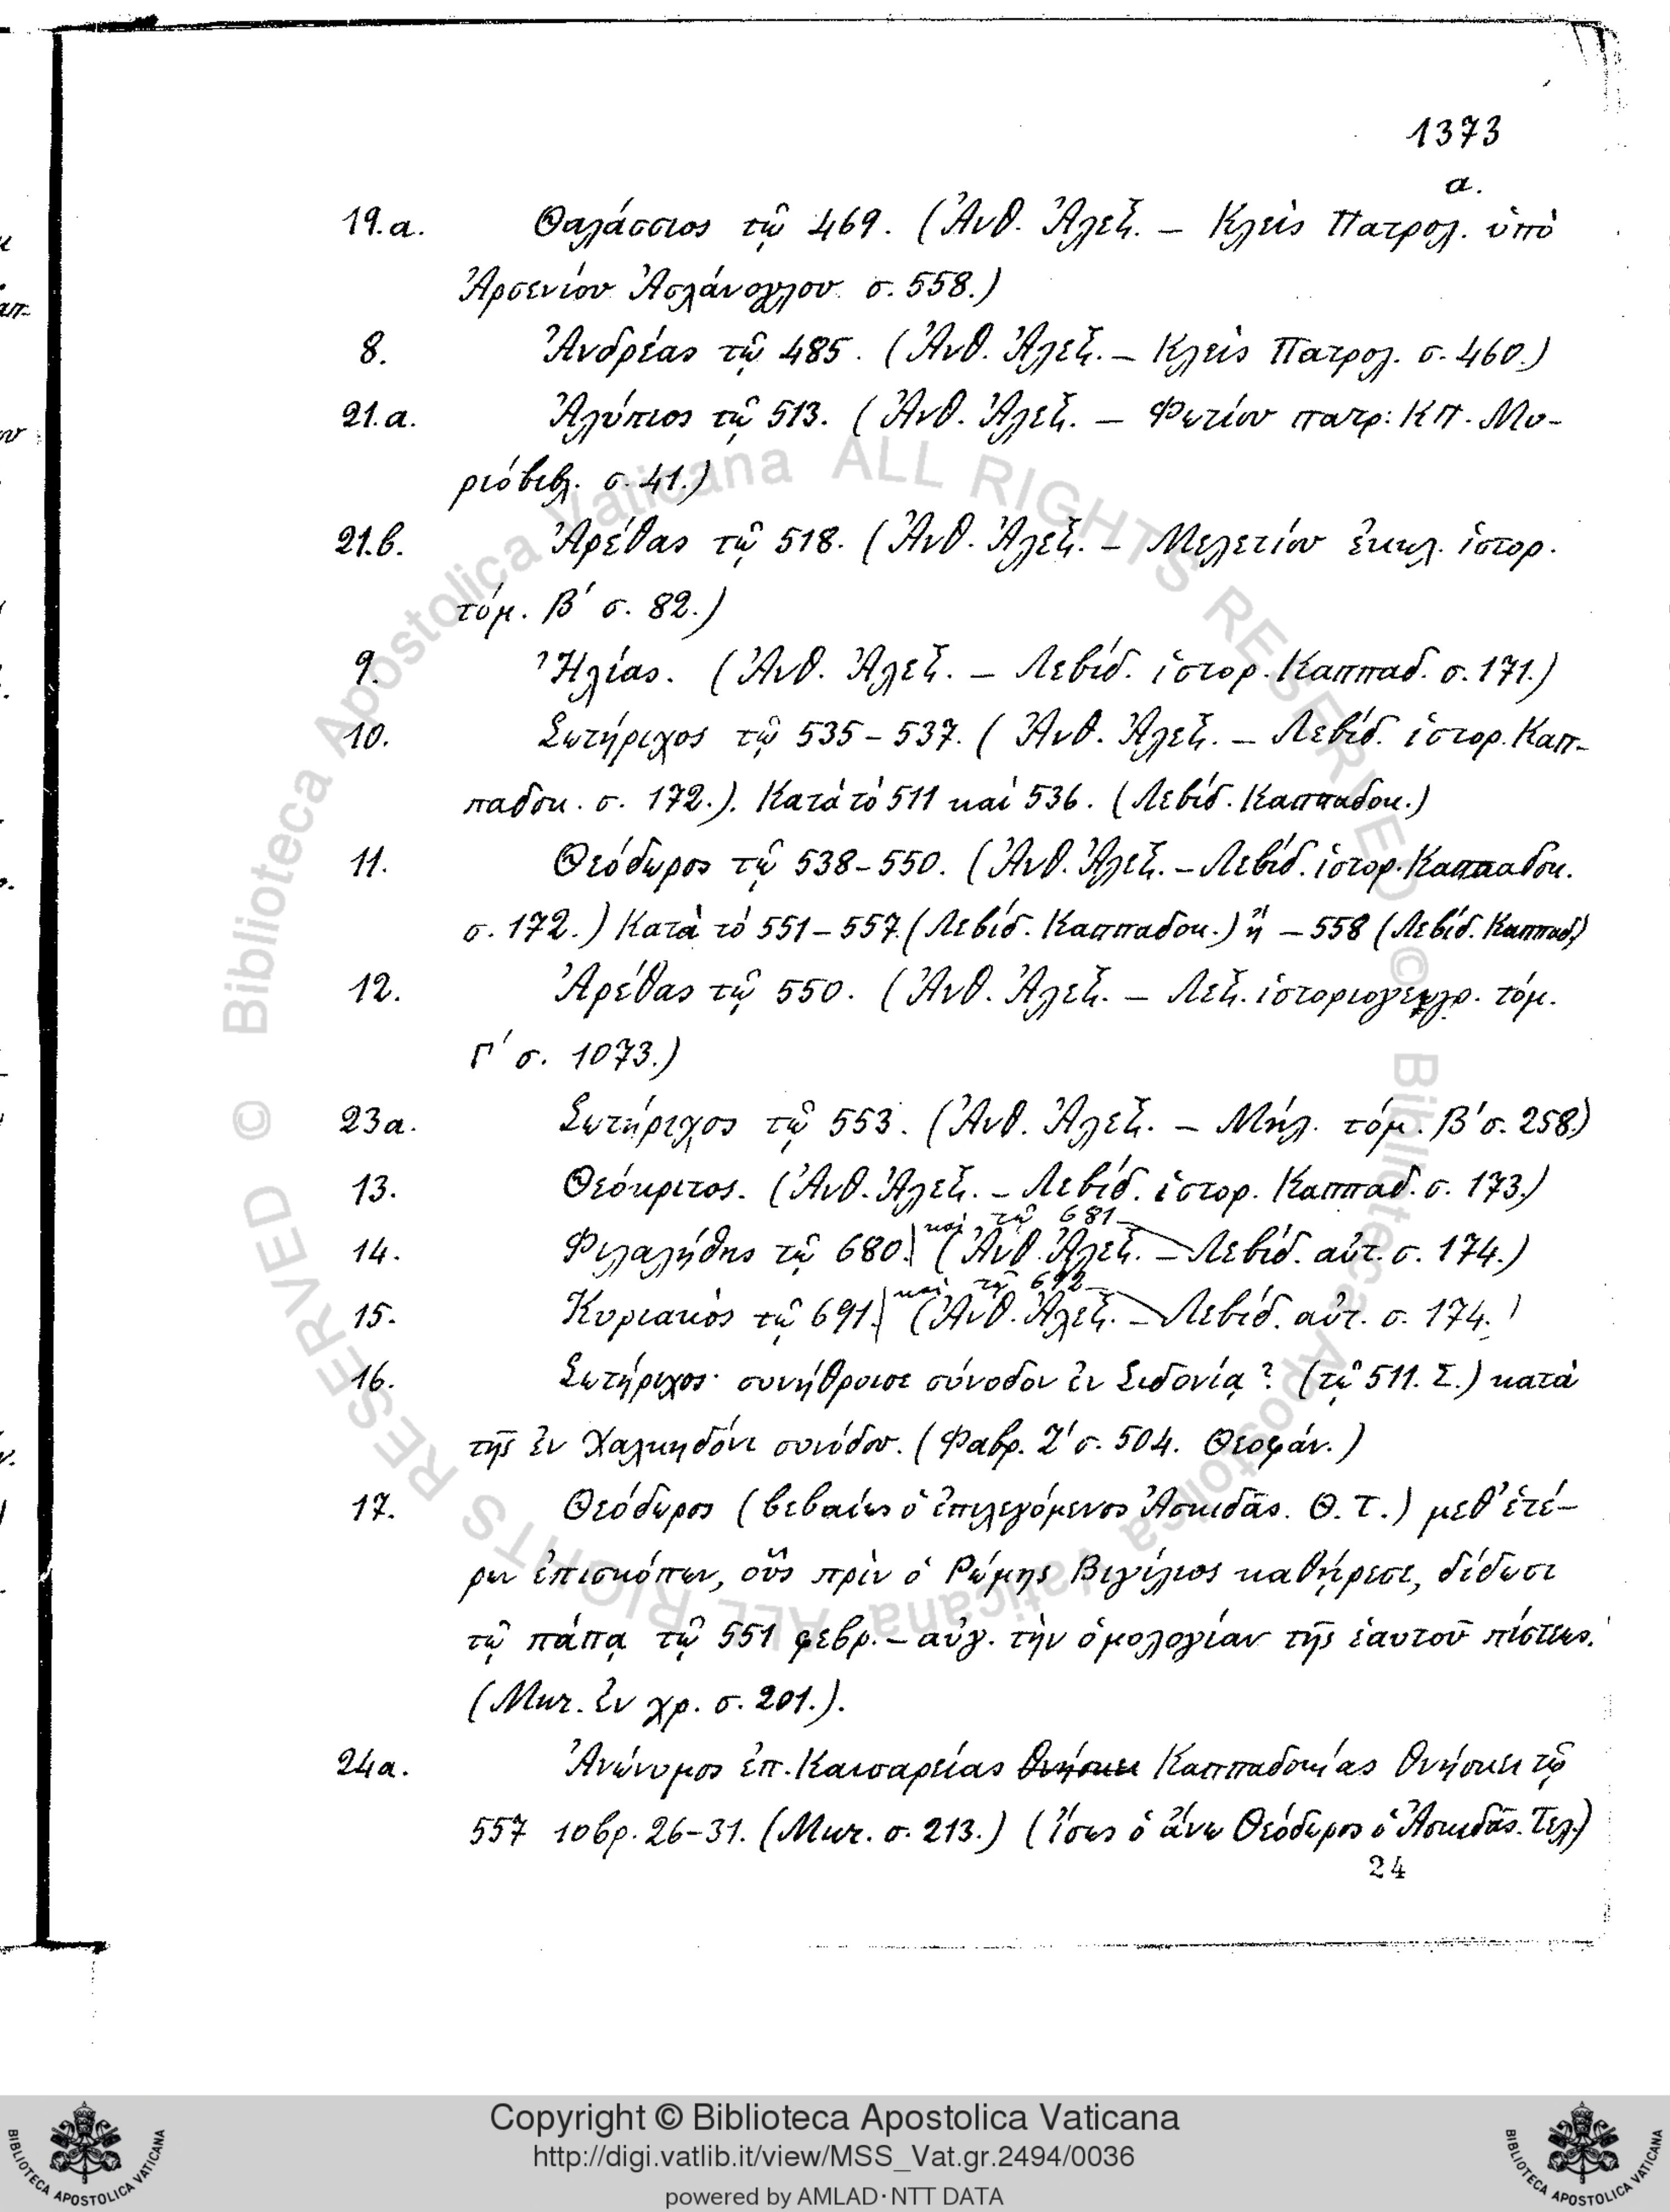 1373
α.
19.α. Θαλάσσιος τῷ 469. (Ἀνθ. Ἀλεξ. – Κλεὶς Πατρολ. ὑπὸ
Ἀρσενίου Ἀσλάνογλου σ. 558.)
8. Ἀνδρέας τῷ 485. (Ἀνθ. Ἀλεξ. – Κλεὶς Πατρολ. σ. 460.)
21.α. Ἀλύπιος τῷ 513. (Ἀνθ. Ἀλεξ. – Φωτίου πατρ: ΚΠ. Μυ-
ριόβιβλ. σ. 41.)
21.β. Ἀρέθας τῷ 518. (Ἀνθ. Ἀλεξ. – Μελετίου ἐκκλ. ἱστορ.
τόμ. Β΄ σ. 82.)
9. Ἠλίας. (Ἀνθ. Ἀλεξ. – Λεβίδ. ἱστορ. Καππαδ. σ. 171.)
10. Σωτήριχος τῷ 535–537. (Ἀνθ. Ἀλεξ. – Λεβίδ. ἱστορ. Καπ-
παδοκ. σ. 172.). Κατὰ τὸ 511 καὶ 536. (Λεβίδ. Καππαδοκ.)
11. Θεόδωρος τῷ 538–550. (Ἀνθ. Ἀλεξ. – Λεβίδ. ἱστορ. Καππαδοκ.
σ. 172.) Κατὰ τὸ 551–557. (Λεβίδ. Καππαδοκ.) ἢ – 558 (Λεβίδ. Καππαδ.)
12. Ἀρέθας τῷ 550. (Ἀνθ. Ἀλεξ. – Λεξ. τόμ.
Γ΄ σ. 1073.)
23α. Σωτήριχος τῷ 553. (Ἀνθ. Ἀλεξ. – Μήλ. τόμ. Β΄ σ. 258.)
13. Θεόκριτος. (Ἀνθ. Ἀλεξ. – Λεβίδ. ἱστορ. Καππαδ. σ. 173.)
καὶ τῷ 681
14. Φιλαλήθης τῷ 680. (Ἀνθ. Ἀλεξ. – Λεβίδ. αὐτ. σ. 174.)
καὶ τῷ 692
15. Κυριακὸς τῷ 691. (Ἀνθ. Ἀλεξ. – Λεβίδ. αὐτ. σ. 174.)
16. Σωτήριχος· συνήθροισε σύνοδον ἐν Σιδονίᾳ? (τῷ 511. Σ.) κατὰ
τῆς ἐν Χαλκηδόνι συνόδου. (Φαβρ. Ζ΄ σ. 504. Θεοφάν.)
17. Θεόδωρος (βεβαίως ὁ ἐπιλεγόμενος Ἀσκιδᾶς. Θ. Τ.) μεθ' ἑτέ-
ρων ἐπισκόπων, οὓς πρὶν ὁ Ῥώμης Βιγίλιος καθῄρεσε, δίδωσι
τῷ πάπᾳ τῷ 551 φεβρ. – αὐγ. τὴν ὁμολογίαν τῆς ἑαυτοῦ πίστεως.
(Μικ. ἐν χρ. σ. 201.).
24α. Ἀνώνυμος ἐπ. Καισαρείας θνήσκει Καππαδοκίας θνήσκει τῷ
557 10βρ. 26–31. (Μικ. σ. 213.) (ἴσως ὁ ἄνω Θεόδωρος ὁ Ἀσκιδᾶς. Τελ.)
24
© Biblioteca Apostolica Vaticana ALL RIGHTS RESERVED © Biblioteca Apostolica Vaticana ALL RIGHTS RESERVED
Copyright © Biblioteca Apostolica Vaticana
http://digi.vatlib.it/view/MSS_Vat.gr.2494/0036
powered by AMLAD·NTT DATA
BIBLIOTECA APOSTOLICA VATICANA
BIBLIOTECA APOSTOLICA VATICANA